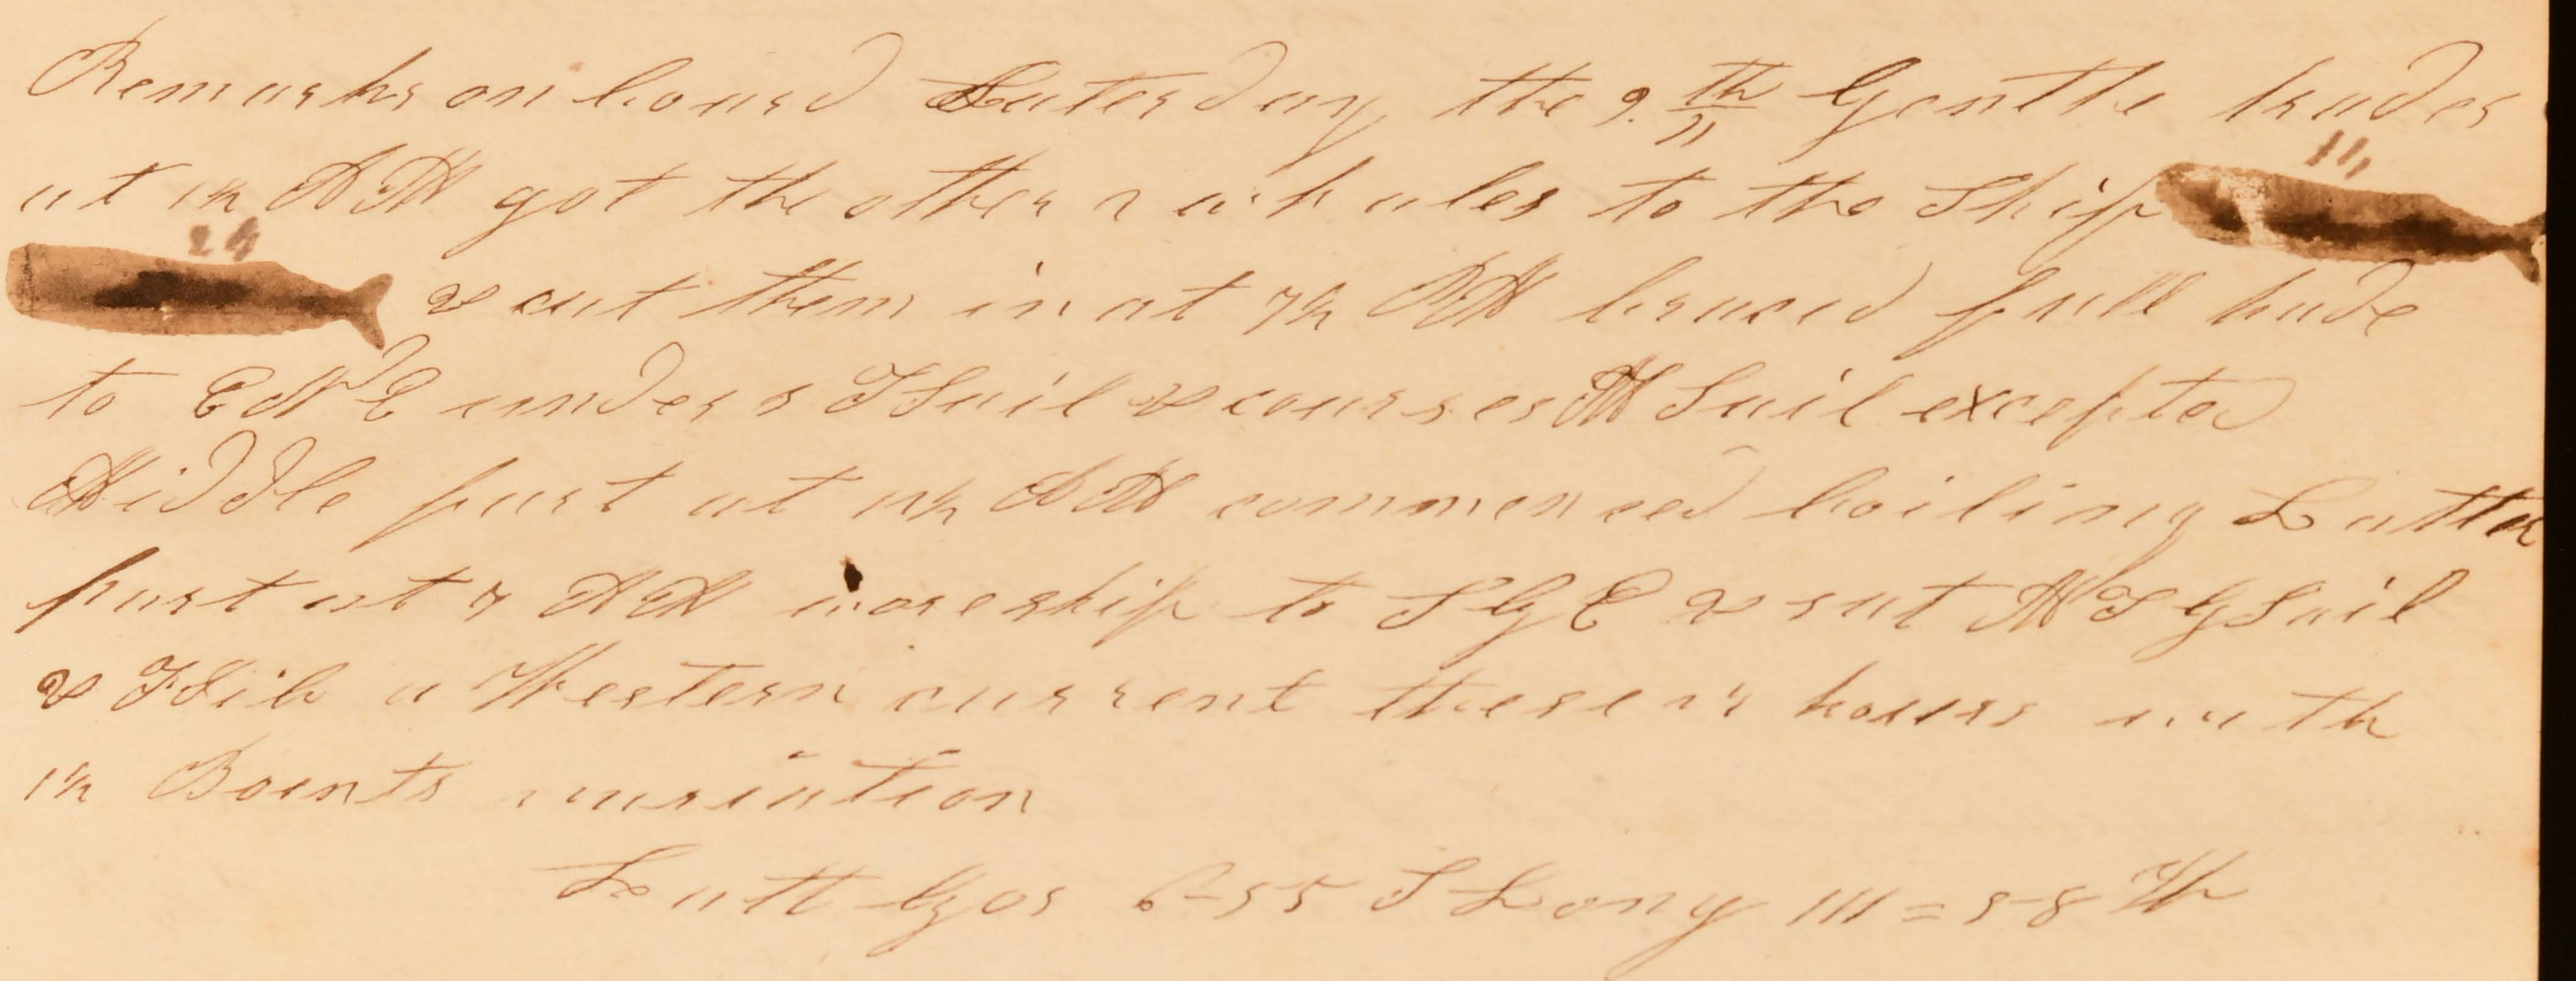 Remarks on board Saterday the 9th Gentle trades
at 1½ AM got the other 2 whales to the Ship
& cut them in at 7½ PM braced full hade
to E N E under TSail & courses M Sail excepted
Middle part at AM commenced boiling Latter
part at 7 AM wore ship to S by E & sut M T G Sail
& F Jib a Western current these 24 hours with
1½ Points variation
Latt by os 6-55 S Long 111=58 W